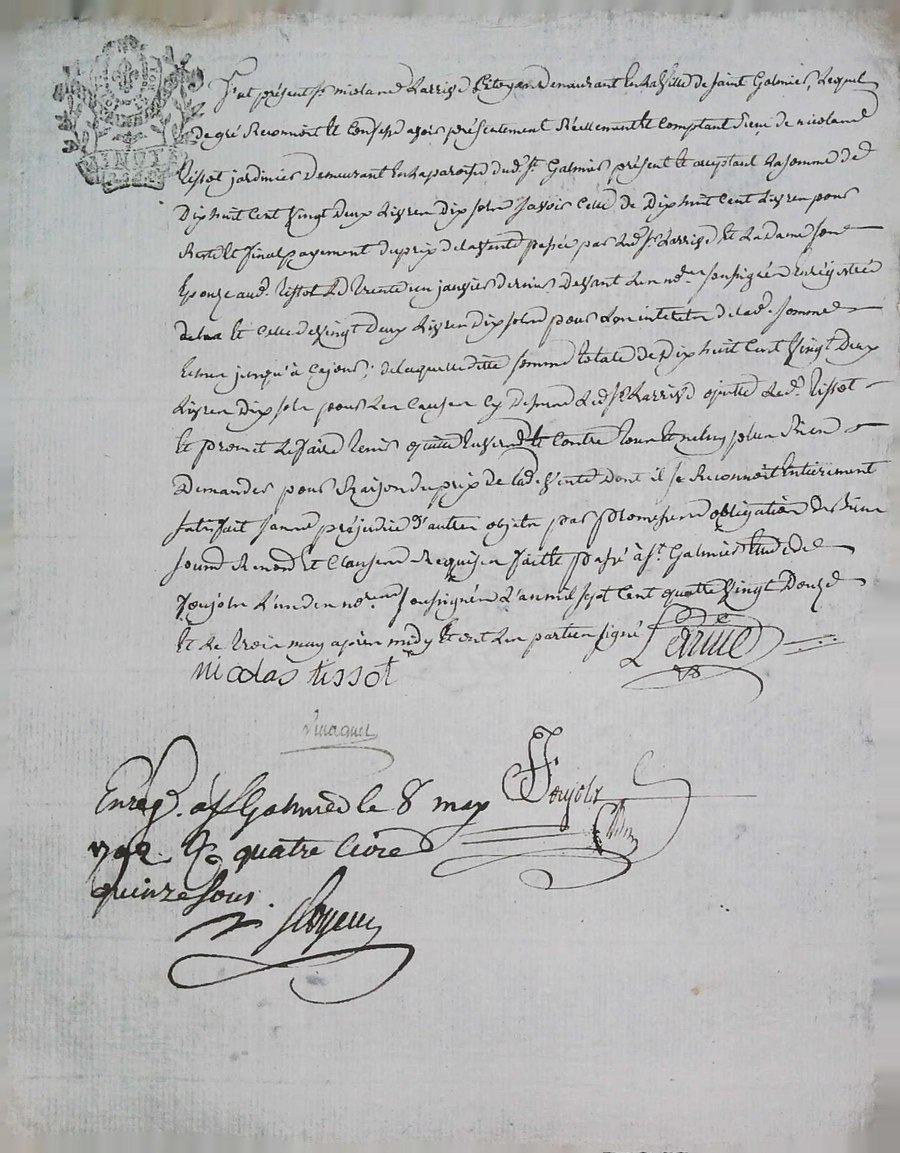 fut présent sr nicolas Larrivé Citoyen demeurant en la ville de saint Galmier, Lequel
de gré Reconnoit et Confesse avoir présentement Réellement et Comptant Receu de nicolas
tissot jardinier demeurant en la paroisse dud. st. Galmier présent et acceptant La somme de
Dix huit Cent Vingt deux Livres Dix sols savoir Celle de Dix huit Cent Livres pour
Reste et final payement du prix de la vente passée par led. sr. Larrivé et La dame son
Epouze aud. tissot Le trente un janvier dernier devant Les nores. soussignés Enregistrée
et Celle de Vingt Deux Livres Dix sols pour Les interets de lad. somme
jusqu'à Ce jour; de laquelle ditte somme totale de Dix huit Cent Vingt Deux
Livres Dix sols pour Les Causes Cy dessus Led. sr. Larrivé quitte Led. tissot
Et promet Le faire tenir quitte Envers et Contre tous et ne luy plus Rien
Demander pour Raison du prix de lad. Vente Dont il se Reconnoit Entierement
satisfait sans préjudice d'autres objets par promesses obligation de Biens
soumis Renond. et Clauses Requises faitte passé à st. Galmier Etude de
Poujols L'un des nores. soussignés L'an mil sept Cent quatre Vingt Douze
et Le trois may après midy Et ont Les parties signé Larrivé
nicolas tissot
Poujols
Enreg. à st Galmier le 8 may
1792. R. quatre livre
quinze sous.